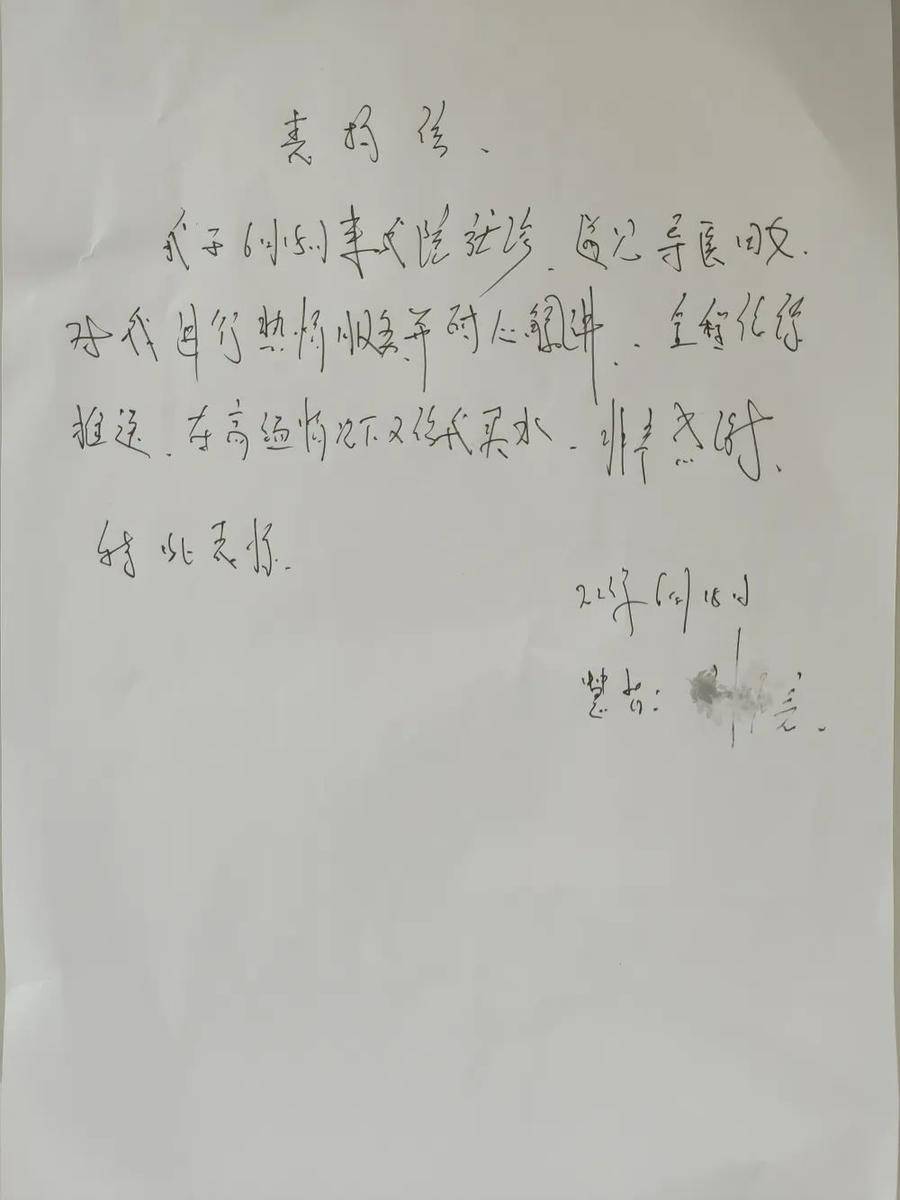 表扬信.
我于6月15日来我院就诊.遇见导医田文.
对我进行热情服务并耐心解释.全程给你
推送.在高温情况下又给我买水.非常感谢.
特此表扬.
22年6月18日
患者: